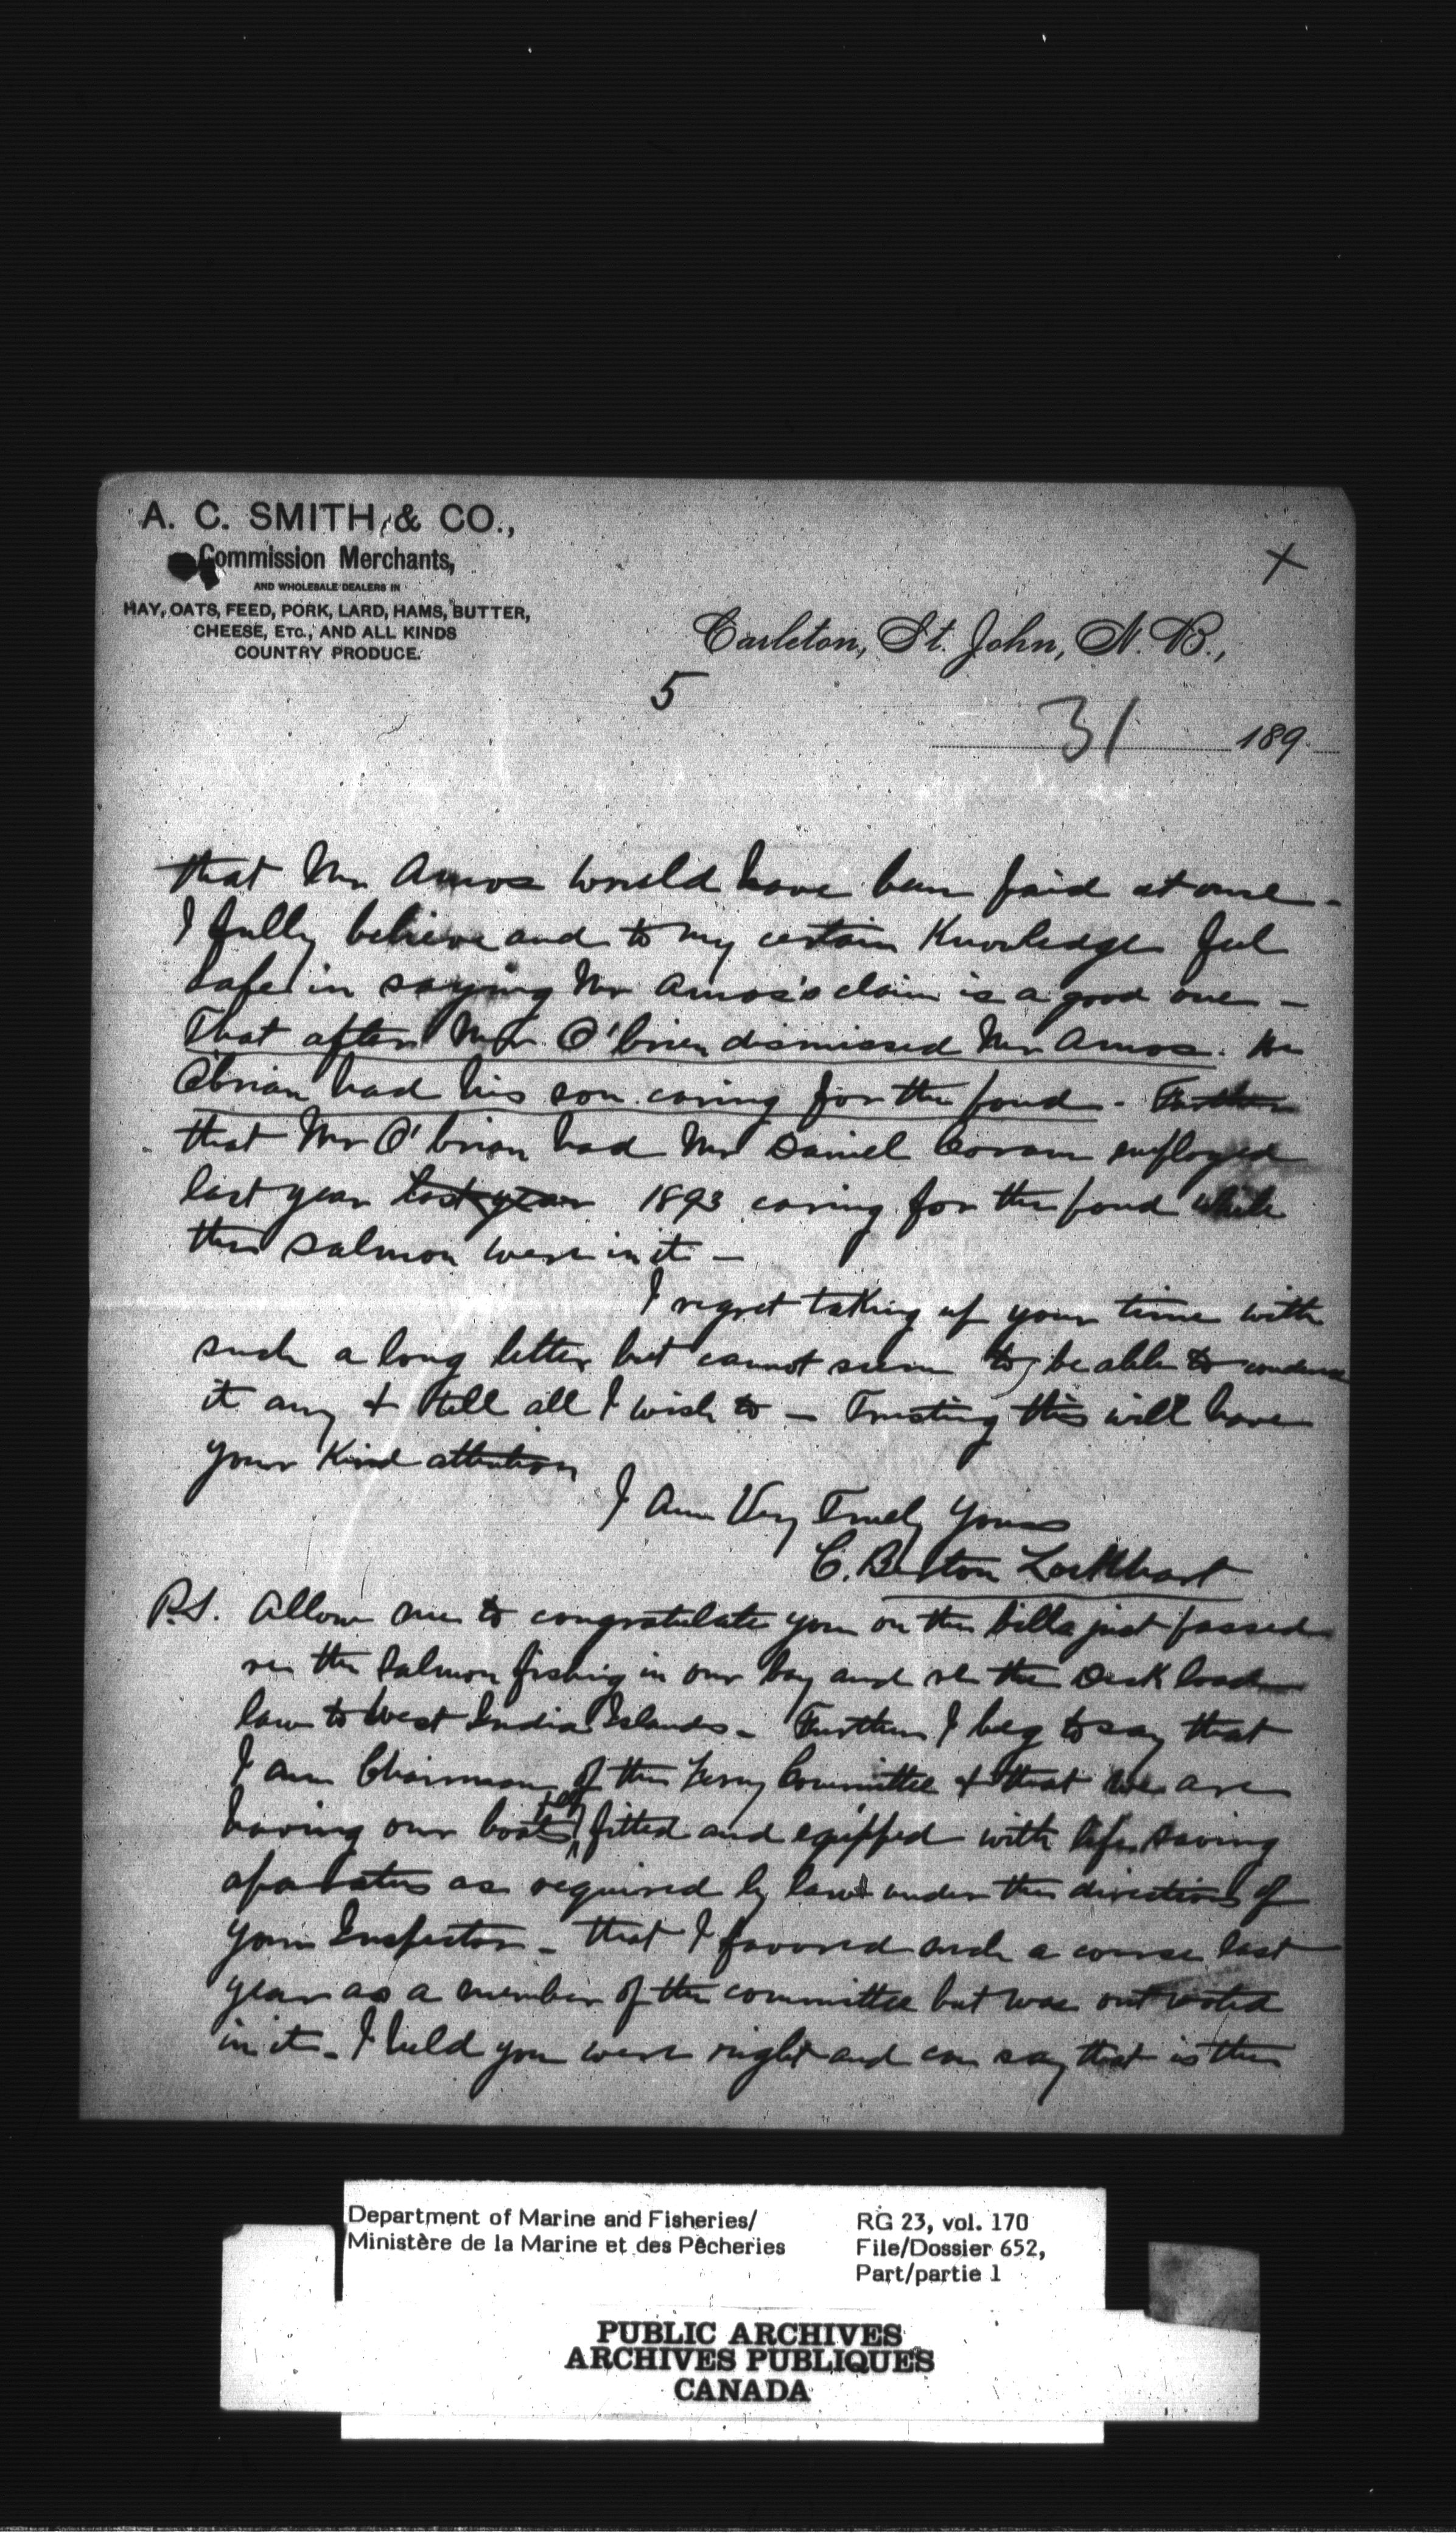 A. C. SMITH & CO.,
Commission Merchants,
AND WHOLESALE DEALERS IN
HAY, OATS, FEED, PORK, LARD, HAMS, BUTTER,
CHEESE, ETC., AND ALL KINDS
COUNTRY PRODUCE.
X
Carleton, St. John, N. B.,
5
31 189
that Mr Amos would have been paid at once -
I fully believe and to my certain Knowledge feel
safe in saying Mr Amos's claim is a good one -
That after Mr O'brien dismissed Mr Amos. Mr
Obrian had his son caring for the pond - Further
that Mr O'brian had Mr Daniel Coram employed
last year last year 1893 caring for the pond while
the salmon were in it -
I regret taking up your time with
such a long letter but cannot seem to be able to condense
it any & tell all I wish to - Trusting this will have
your Kind attention
I Am Very Truely Yours
C. Belton Lockhart
P.S. Allow me to congratulate you on the bills just passed
re the Salmon fishing in our bay and re the Deck load
law to West India Islands - Further I beg to say that
I am Chairman of the Ferry Committee & that we are
having our boats fitted and equipped with life saving
aparatus as required by law under the directions of
your Inspector - that I favored such a course last
year as a member of the committee but was out voted
in it - I held you were right and can say that is the
Department of Marine and Fisheries/
Ministère de la Marine et des Pêcheries
RG 23, vol. 170
File/Dossier 652,
Part/partie 1
PUBLIC ARCHIVES
ARCHIVES PUBLIQUES
CANADA